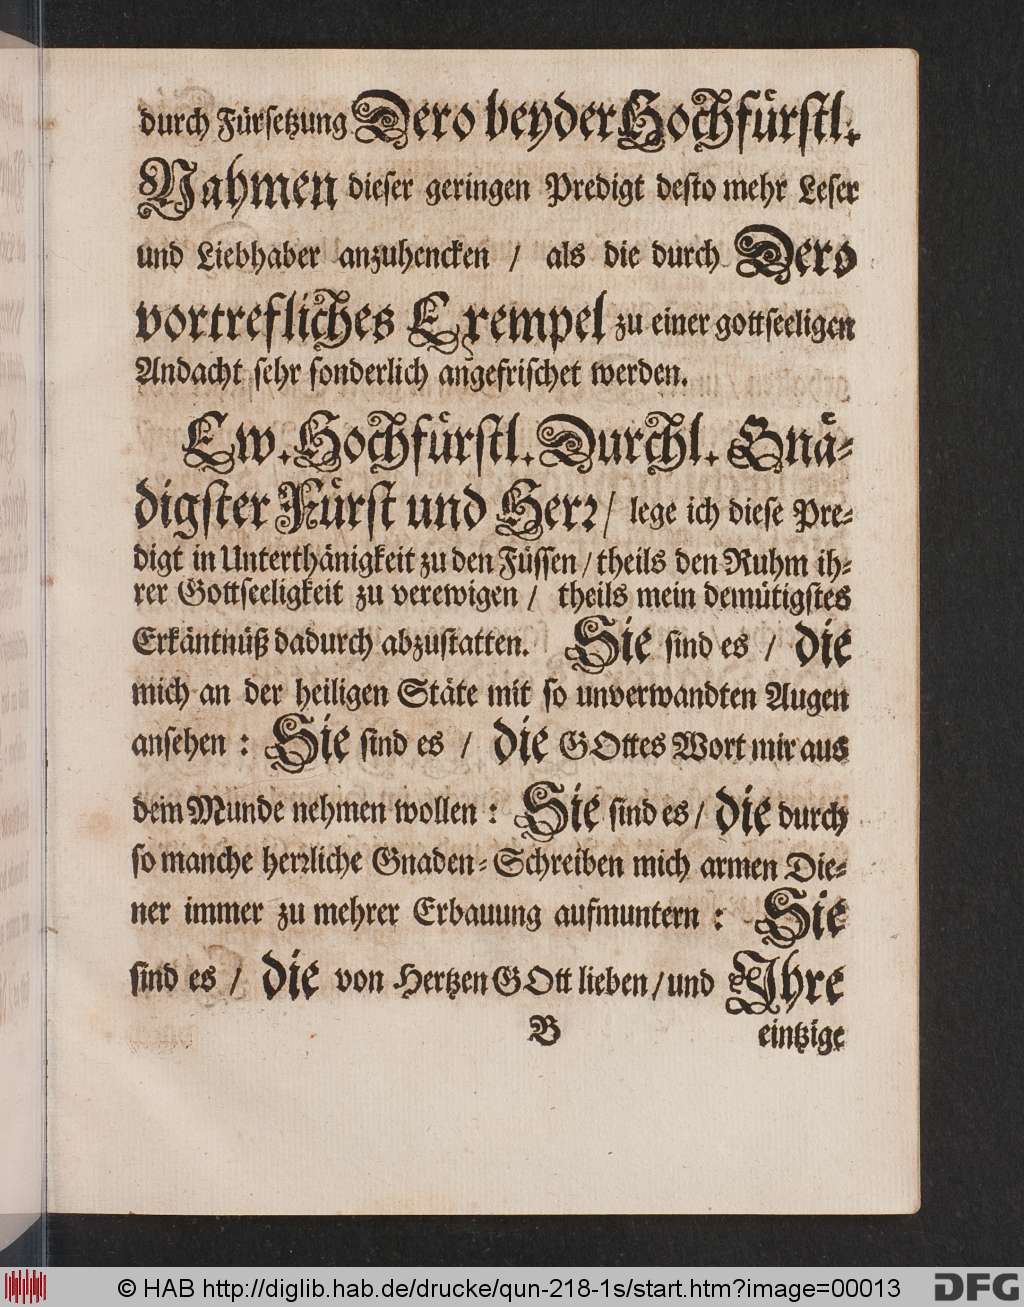 durch Fürsetzung Dero beyder Hochfürstl.
Nahmen dieser geringen Predigt desto mehr Leser
und Liebhaber anzuhencken / als die durch Dero
vortrefliches Exempel zu einer gottseeligen
Andacht sehr sonderlich angefrischet werden.
Ew. Hochfürstl. Durchl. Gnä-
digster Fürst und Herr / lege ich diese Pre-
digt in Unterthänigkeit zu den Füssen / theils den Ruhm ih-
rer Gottseeligkeit zu verewigen / theils mein demütigstes
Erkäntnüß dadurch abzustatten. Sie sind es / die
mich an der heiligen Stäte mit so unverwandten Augen
ansehen : Sie sind es / die GOttes Wort mir aus
dem Munde nehmen wollen : Sie sind es / die durch
so manche herrliche Gnaden-Schreiben mich armen Die-
ner immer zu mehrer Erbauung aufmuntern : Sie
sind es / die von Hertzen GOtt lieben / und Ihre
B eintzige
© HAB http://diglib.hab.de/drucke/qun-218-1s/start.htm?image=00013
DFG